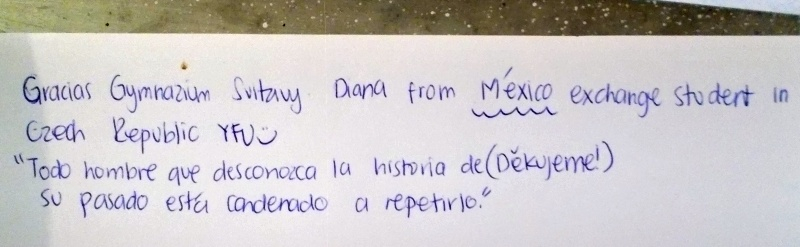 Gracias Gymnazium Svitavy. Diana from México exchange student in
Czech Republic YFU
"Todo hombre que desconozca la historia de (Děkujeme!)
su pasado está condenado a repetirlo."